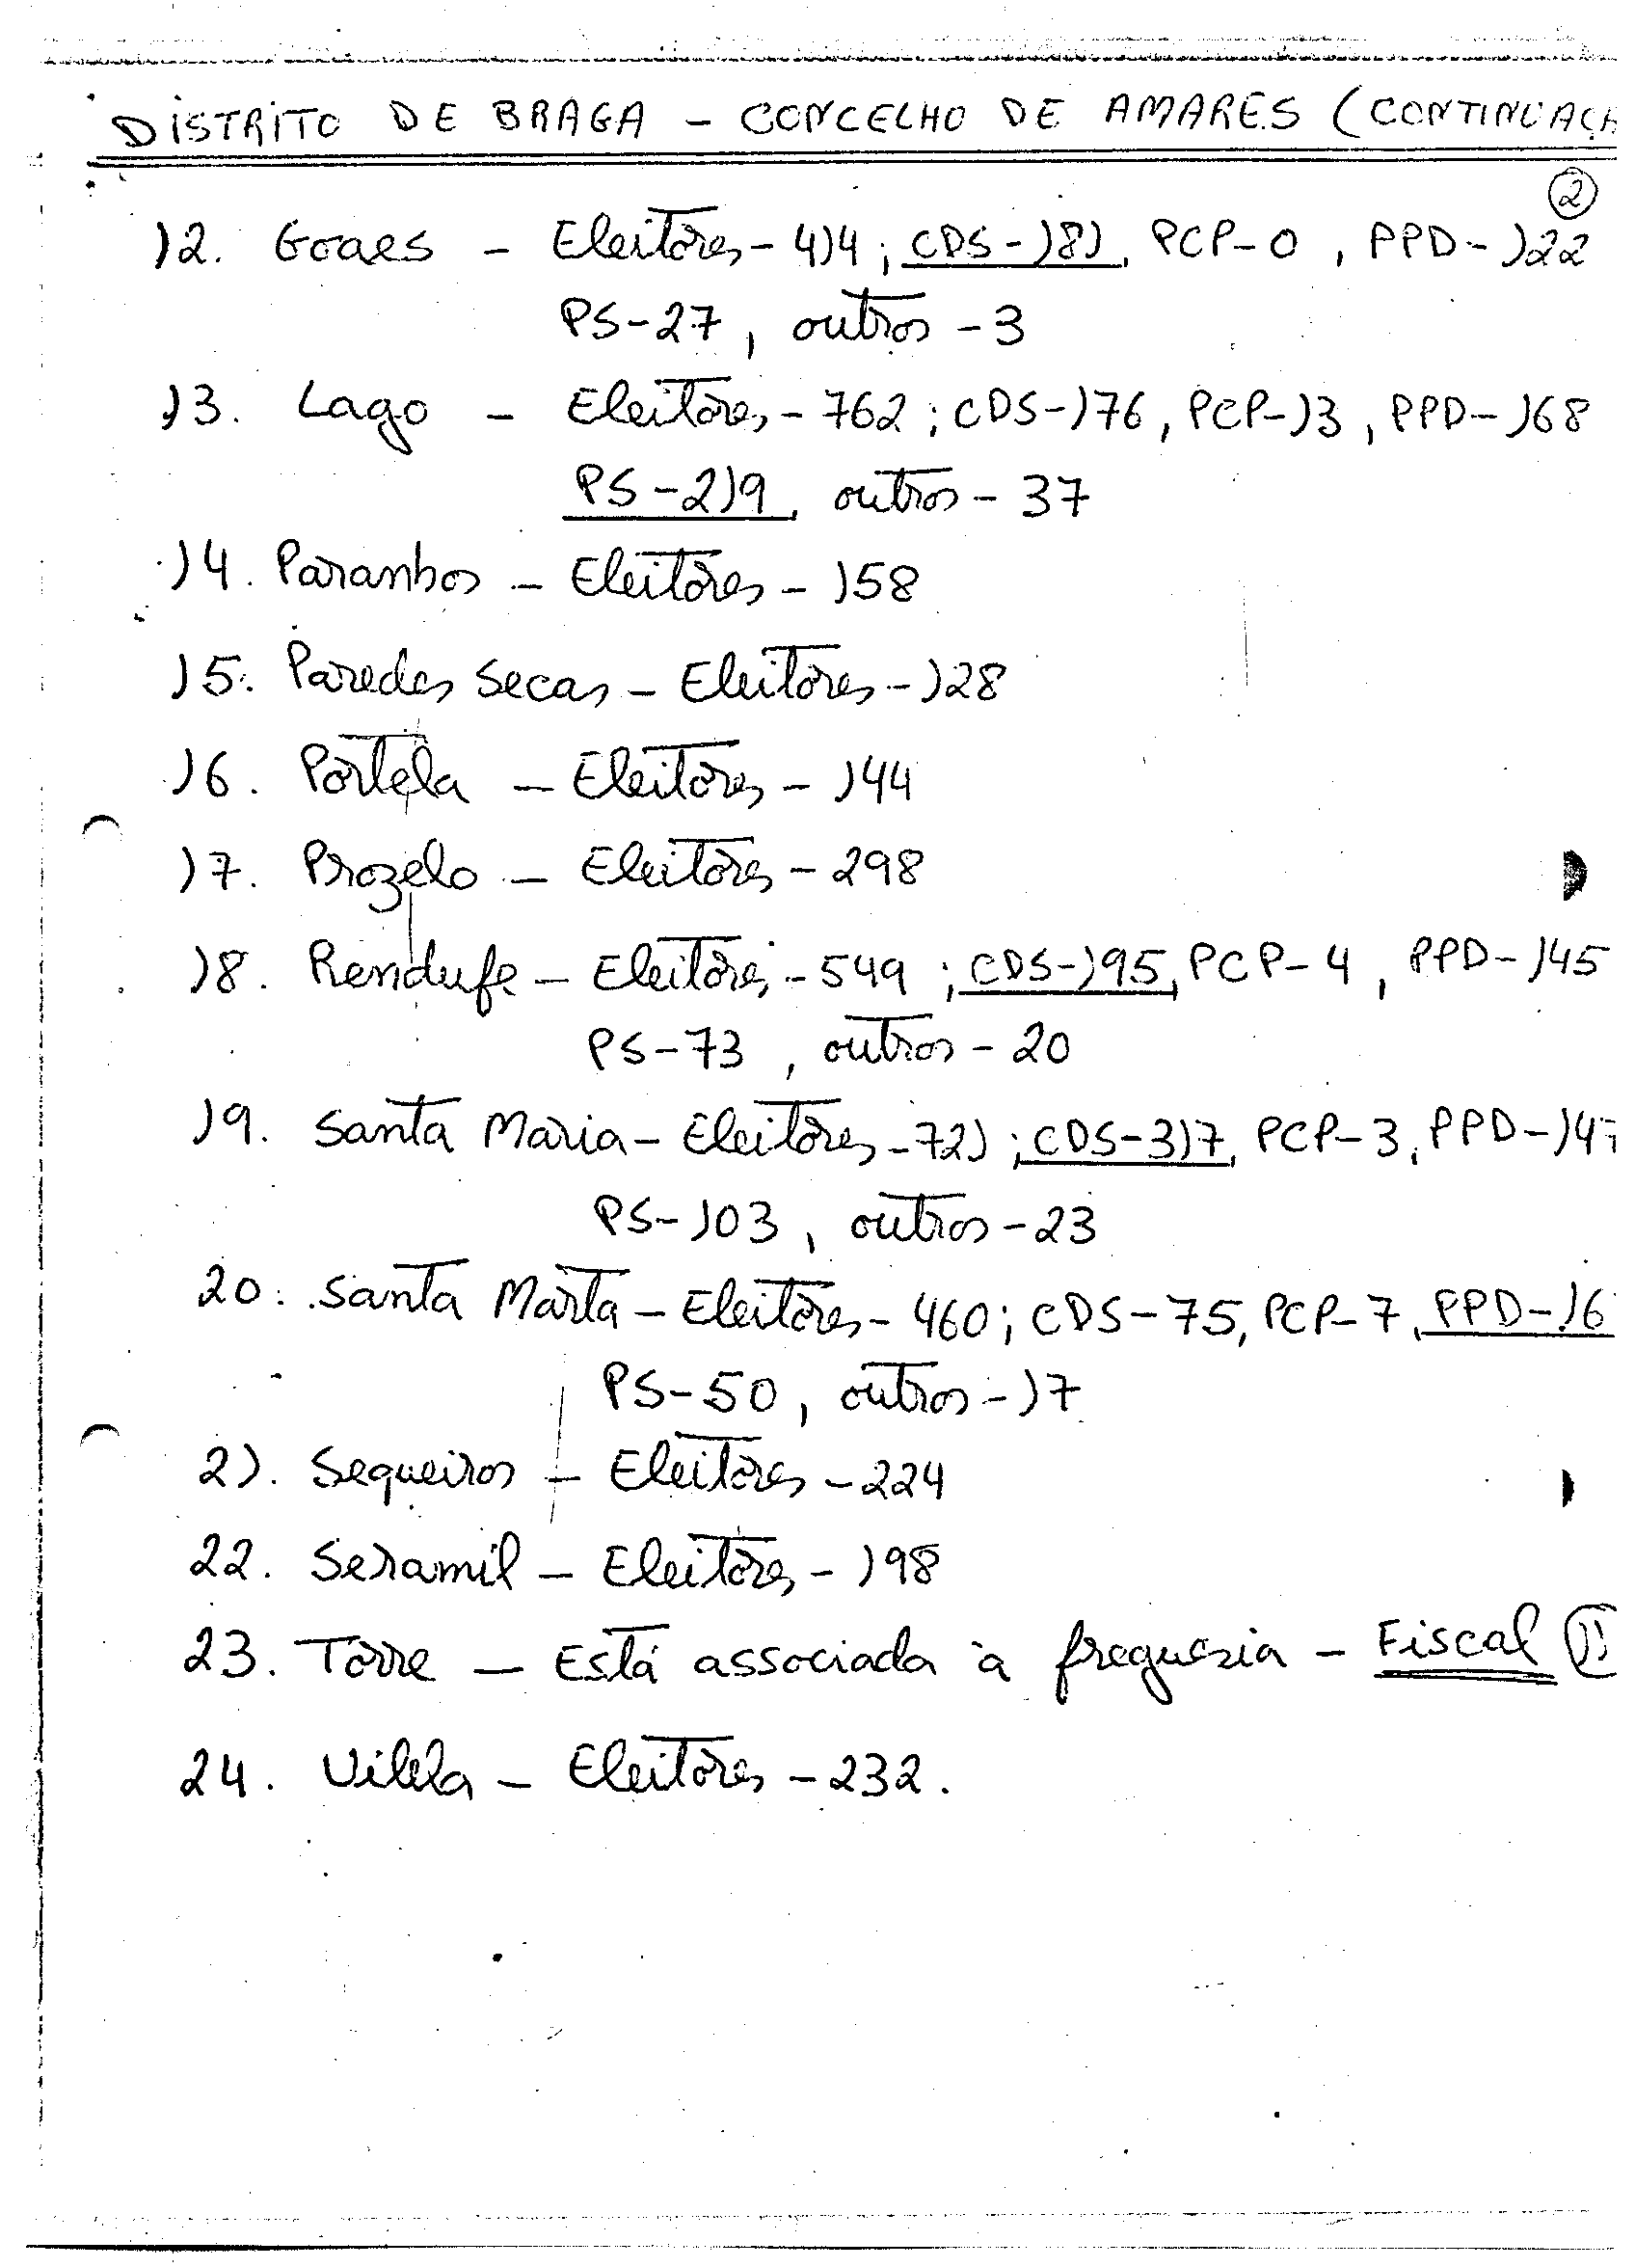 DISTRITO DE BRAGA - CONCELHO DE AMARES (CONTINUAÇA
2
12. Goaes - Eleitores - 414; CDS-181, PCP-0, PPD-122
PS-27, outros-3
13. Lago - Eleitores - 762; CDS-176, PCP-13, PPD-168
PS-219, outros-37
14. Paranhos - Eleitores - 158
15. Paredes Secas - Eleitores - 128
16. Portela - Eleitores - 144
17. Prozelo - Eleitores - 298
18. Rendufe - Eleitores - 549; CDS-195, PCP-4, PPD-145
PS-73, outros-20
19. Santa Maria - Eleitores - 721; CDS-317, PCP-3, PPD-147
PS-103, outros-23
20. Santa Marta - Eleitores - 460; CDS-75, PCP-7, PPD-16
PS-50, outros-17
21. Sequeiros - Eleitores - 224
22. Seramil - Eleitores - 198
23. Torre - Está associada à freguesia - Fiscal 11
24. Vilela - Eleitores - 232.